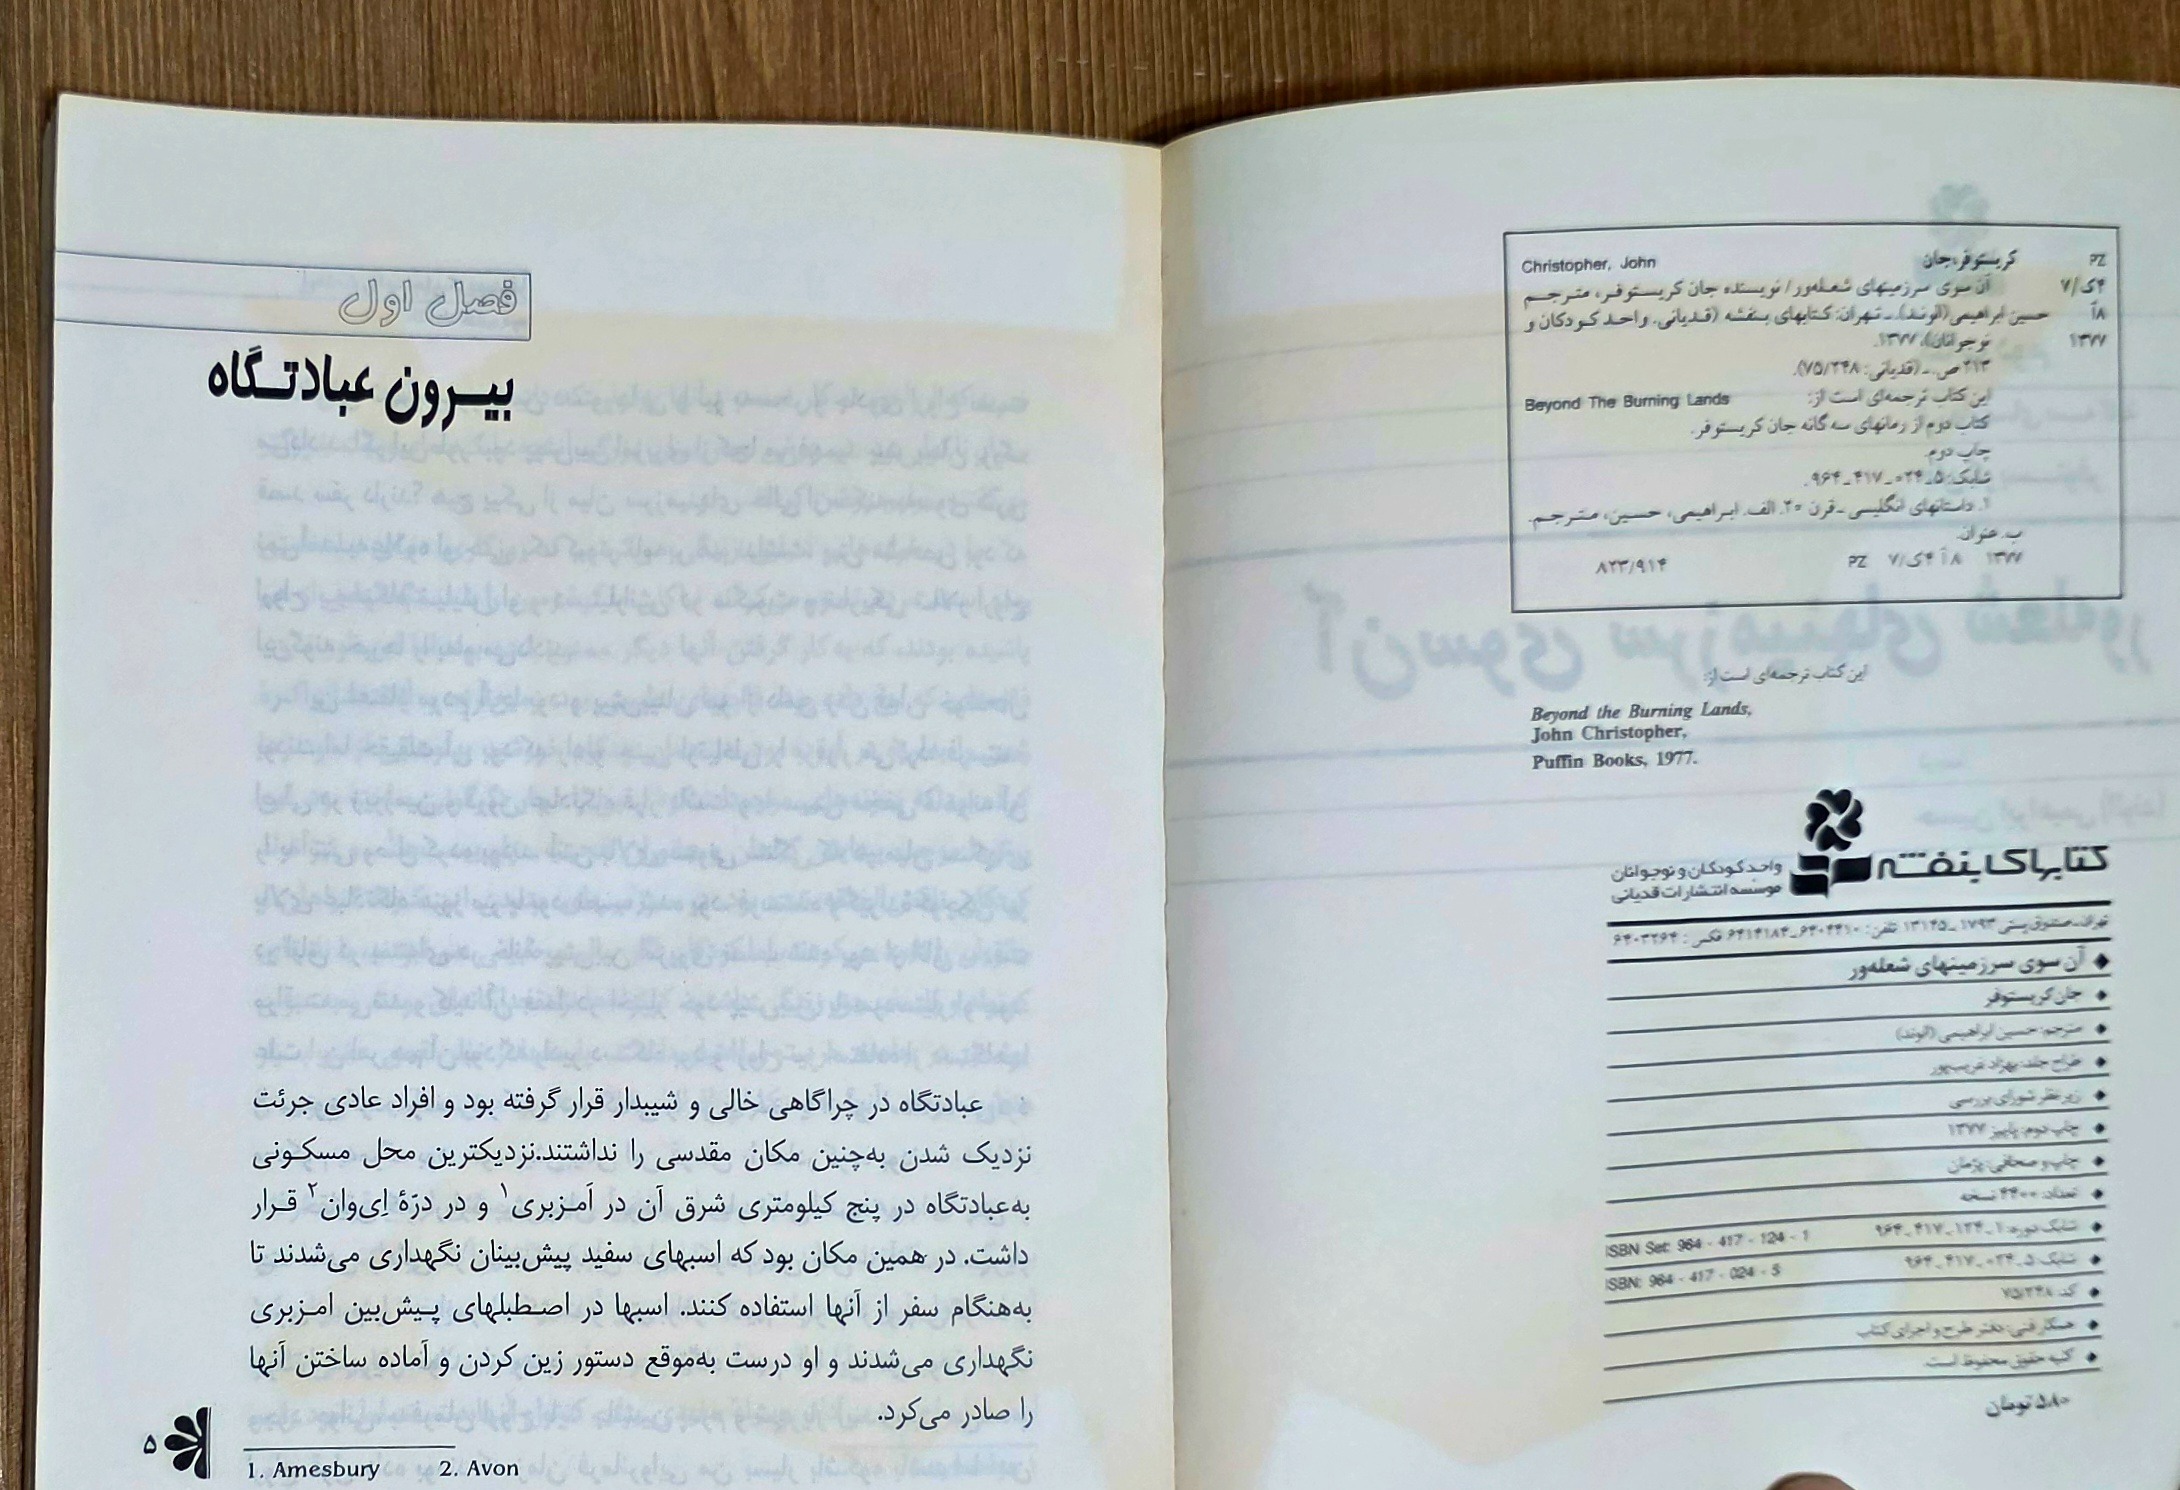 PZ کریستوفر، جان Christopher, John
۷/ک۴ آن سوی سرزمینهای شعله‌ور / نویسنده جان کریستوفر، مترجم
۸آ حسین ابراهیمی (الوند). ـ تهران: کتابهای بنفشه (قدیانی. واحد کودکان و
۱۳۷۷ نوجوانان)، ۱۳۷۷.
۲۱۳ ص. ـ (قدیانی: ۷۵/۲۴۸).
این کتاب ترجمه‌ای است از: Beyond The Burning Lands
کتاب دوم از رمانهای سه گانه جان کریستوفر.
چاپ دوم.
شابک: ۵ـ۰۲۴ـ۴۱۷ـ۹۶۴.
۱. داستانهای انگلیسی ـ قرن ۲۰. الف. ابراهیمی، حسین، مترجم.
ب. عنوان.
۱۳۷۷ ۸آ۴ک/۷ PZ ۸۲۳/۹۱۴
این کتاب ترجمه‌ای است از:
Beyond the Burning Lands,
John Christopher,
Puffin Books, 1977.
کتابهای بنفشه
واحد کودکان و نوجوانان
موسسه انتشارات قدیانی
تهران، صندوق پستی ۱۷۹۳ـ۱۳۱۴۵ تلفن: ۶۴۰۴۴۱۰ـ۶۴۱۴۱۸۴ فکس: ۶۴۰۳۲۶۴
◆ آن سوی سرزمینهای شعله‌ور
◆ جان کریستوفر
◆ مترجم: حسین ابراهیمی (الوند)
◆ طراح جلد: بهزاد غریب‌پور
◆ زیر نظر شورای بررسی
◆ چاپ دوم: پاییز ۱۳۷۷
◆ چاپ و صحافی: پژمان
◆ تعداد: ۴۴۰۰ نسخه
◆ شابک دوره: ۱ـ۱۲۴ـ۴۱۷ـ۹۶۴ ISBN Set: 964 - 417 - 124 - 1
◆ شابک: ۵ـ۰۲۴ـ۴۱۷ـ۹۶۴ ISBN: 964 - 417 - 024 - 5
◆ کد: ۷۵/۲۴۸
◆ همکار فنی: دفتر طرح و اجرای کتاب
◆ کلیه حقوق محفوظ است.
۵۸۰ تومان
فصل اول
بیرون عبادتگاه
عبادتگاه در چراگاهی خالی و شیبدار قرار گرفته بود و افراد عادی جرئت
نزدیک شدن به‌چنین مکان مقدسی را نداشتند.نزدیکترین محل مسکونی
به‌عبادتگاه در پنج کیلومتری شرق آن در اَمزبری۱ و در درّهٔ اِی‌وان۲ قرار
داشت. در همین مکان بود که اسبهای سفید پیش‌بینان نگهداری می‌شدند تا
به‌هنگام سفر از آنها استفاده کنند. اسبها در اصطبلهای پیش‌بین امزبری
نگهداری می‌شدند و او درست به‌موقع دستور زین کردن و آماده ساختن آنها
را صادر می‌کرد.
1. Amesbury 2. Avon
۵